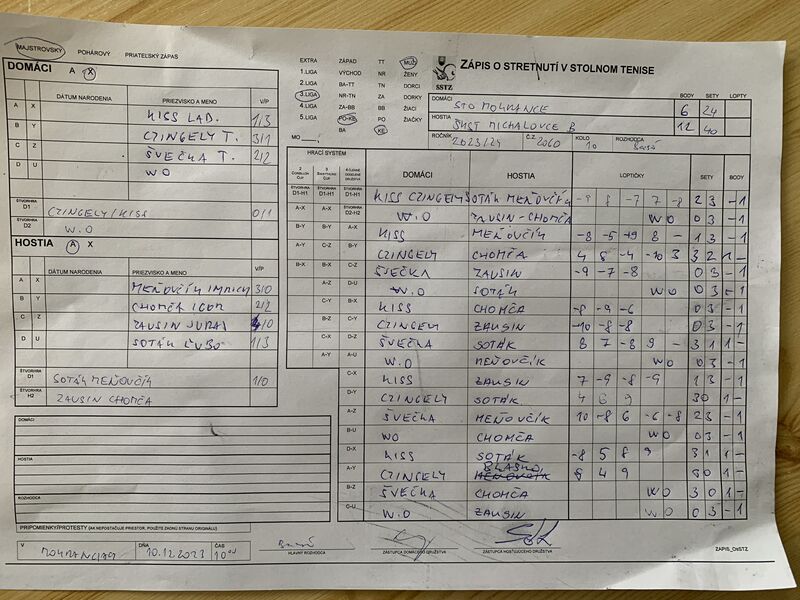 MAJSTROVSKÝ POHÁROVÝ PRIATEĽSKÝ ZÁPAS
DOMÁCI A X
DÁTUM NARODENIA PRIEZVISKO A MENO V/P
A X KISS LAD. 1/3
B Y CZINGELY T. 3/1
C Z ŠVEČKA T. 2/2
D U WO
ŠTVORHRA D1 CZINGELY/KISS 0/1
ŠTVORHRA D2 W.O
HOSTIA A X
DÁTUM NARODENIA PRIEZVISKO A MENO V/P
A X MEŇOVČÍK IMRICH 3/0
B Y CHOMČA IGOR 2/2
C Z ZAUSIN JURAJ /0
D U SOTÁK ĽUBO 1/3
ŠTVORHRA D1 SOTÁK MEŇOVČÍK 1/0
ŠTVORHRA H2 ZAUSIN CHOMČA
DOMÁCI
HOSTIA
ROZHODCA
PRIPOMIENKY/PROTESTY (AK NEPOSTAČUJE PRIESTOR, POUŽITE ZADNÚ STRANU ORIGINÁLU)
V DŇA 10.12.2023 ČAS 10
HLAVNÝ ROZHODCA ZÁSTUPCA DOMÁCEHO DRUŽSTVA ZÁSTUPCA HOSŤUJÚCEHO DRUŽSTVA ZÁPIS_OsSTZ
EXTRA ZÁPAD TT MUŽI
1.LIGA VÝCHOD NR ŽENY
2.LIGA BA-TT TN DORCI
3.LIGA NR-TN ZA DORKY
4.LIGA ZA-BB BB ŽIACI
5.LIGA PO-KE PO ŽIAČKY
MO BA KE
SSTZ
ZÁPIS O STRETNUTÍ V STOLNOM TENISE
BODY SETY LOPTY
DOMÁCI STO MOKRANCE 6 24
HOSTIA ŠKST MICHALOVCE B 12 40
ROČNÍK 2023/24 Č.Z 2060 KOLO 10 ROZHODCA
HRACÍ SYSTÉM DOMÁCI HOSTIA LOPTIČKY SETY BODY
D1-H1 D1-H1 D1-H1 KISS CZINGELY SOTÁK MEŇOVČÍK -9 8 -7 7 -8 2 3 - 1
A-X A-X D2-H2 W.O ZAUSIN-CHOMČA WO 0 3 - 1
B-Y B-Y A-X KISS MEŇOVČÍK -8 -5 -9 8 - 1 3 - 1
A-Y C-Z B-Y CZINGELY CHOMČA 4 8 -4 -10 3 3 2 1 -
B-X B-X C-Z ŠVEČKA ZAUSIN -9 -7 -8 0 3 - 1
A-Z D-U W.O SOTÁK WO 0 3 - 1
C-Y B-X KISS CHOMČA -8 -9 -6 0 3 - 1
B-Z C-Y CZINGELY ZAUSIN -10 -8 -8 0 3 - 1
C-X D-Z ŠVEČKA SOTÁK 8 7 -8 9 - 3 1 1 -
A-Y A-U W.O MEŇOVČÍK WO 0 3 - 1
C-X KISS ZAUSIN 7 -9 -8 -9 1 3 - 1
D-Y CZINGELY SOTÁK 4 6 9 3 0 1 -
A-Z ŠVEČKA MEŇOVČÍK 10 -8 6 -6 -8 2 3 - 1
B-U WO CHOMČA WO 0 3 - 1
D-X KISS SOTÁK -8 5 8 9 3 1 1 -
A-Y CZINGELY BLAŠKO 8 4 9 3 0 1 -
B-Z ŠVEČKA CHOMČA WO 3 0 1 -
C-U W.O ZAUSIN WO 0 3 - 1